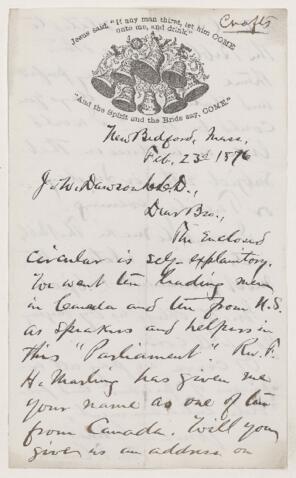 Crafts
Jesus said, "If any man thirst, let him COME
unto me, and drink."
"And the Spirit and the Bride say, COME."
New Bedford, Mass,
Feb. 23d 1876
J. W. Dawson LL.D.,
Dear Bro.,
The Enclosed
circular is self-explanatory.
We want ten leading men
in Canada and ten from U.S.
as speakers and helpers in
this "Parliament". Rev. F.
H. Marling has given me
your name as one of ten
from Canada. Will you
give us an address on